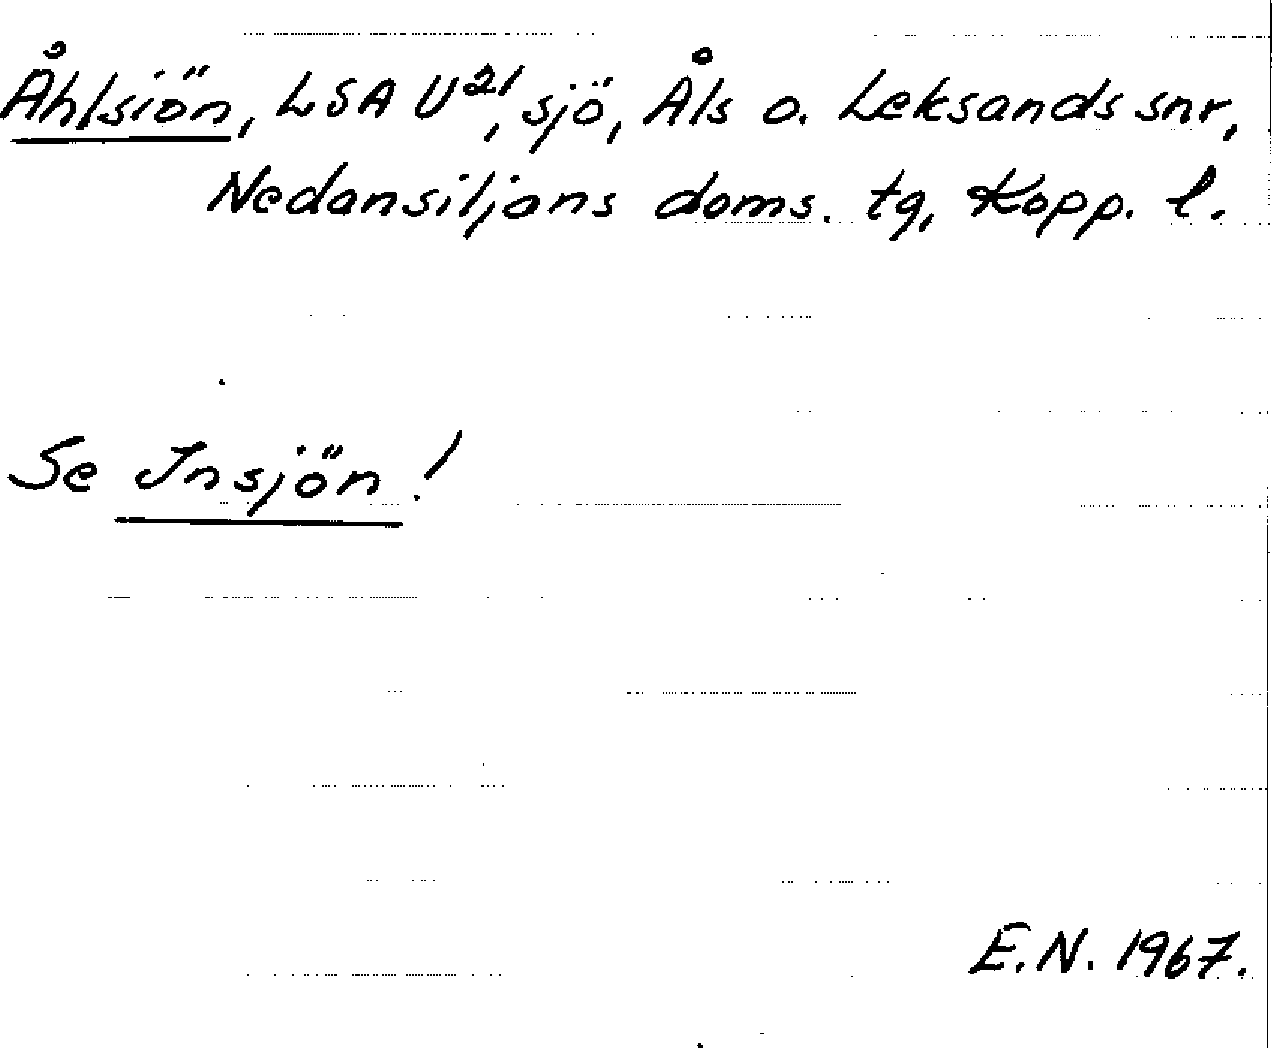 Åhlsiön, LSA U21, sjö, Åls o. Leksands snr,
Nedansiljans doms. tg, Kopp. l.
Se Insjön!
E.N. 1967.